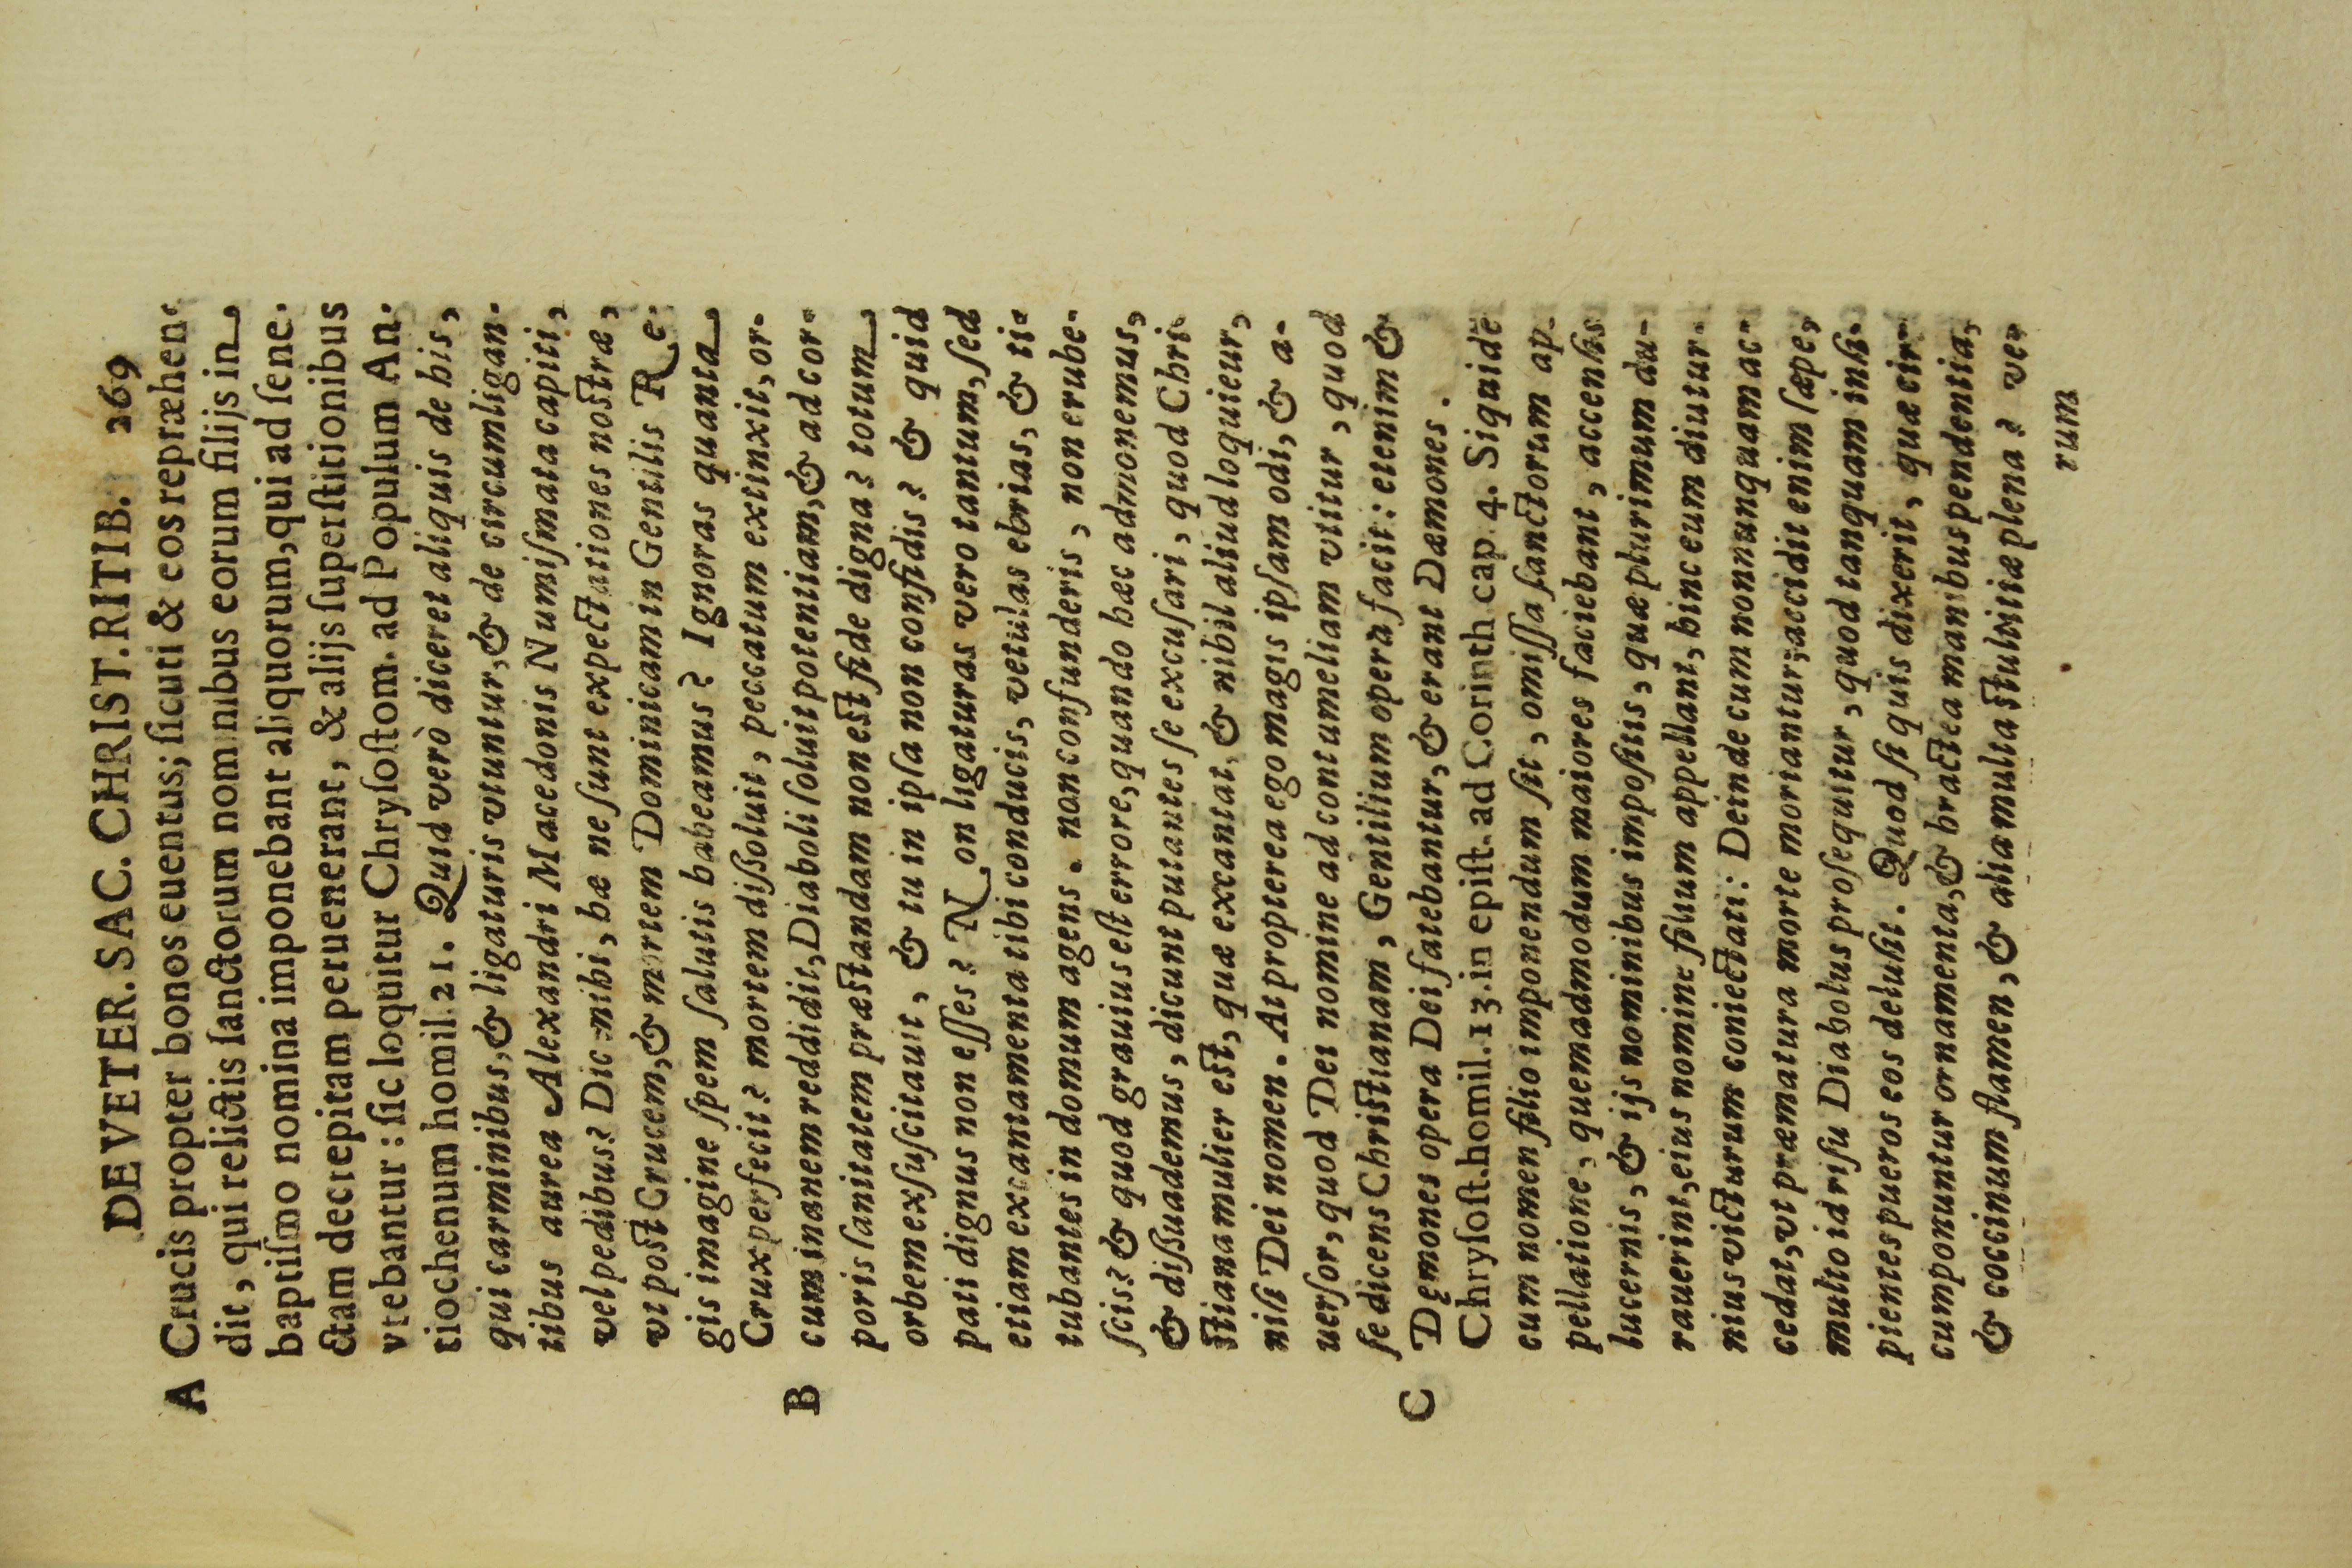 DE VETER. SAC. CHRIST. RITIB. 269
A Crucis propter bonos euentus; ſicuti & eos repræhen-
dit, qui relictis ſanctorum nominibus eorum filijs in
baptiſmo nomina imponebant aliquorum, qui ad ſene-
ctam decrepitam peruenerant, & alijs ſuperſtitionibus
vtebantur: ſic loquitur Chryſoſtom. ad Populum An-
tiochenum homil. 21. Quid verò diceret aliquis de his,
qui carminibus, & ligaturis vtuntur, & de circumligan-
tibus aurea Alexandri Macedonis Numiſmata capiti,
vel pedibus? Dic mihi, hæ ne ſunt expectationes noſtræ,
vt poſt Crucem, & mortem Dominicam in Gentilis Re-
gis imagine ſpem ſalutis habeamus? Ignoras quanta
Crux perfecit? mortem diſſoluit, peccatum extinxit, or-
B cum inanem reddidit, Diaboli ſoluit potentiam, & ad cor-
poris ſanitatem præſtandam non eſt fide digna? totum
orbem exſuſcitauit, & tu in ipſa non confidis? & quid
pati dignus non eſſes? Non ligaturas vero tantum, ſed
etiam excantamenta tibi conducis, vetulas ebrias, & ti-
tubantes in domum agens. non confunderis, non erube-
ſcis? & quod grauius eſt errore, quando hæc admonemus,
& diſſuademus, dicunt putantes ſe excuſari, quod Chri-
ſtiana mulier eſt, quæ excantat, & nihil aliud loquieur,
niſi Dei nomen. At propterea ego magis ipſam odi, & a-
uerſor, quod Dei nomine ad contumeliam vtitur, quod
ſe dicens Chriſtianam, Gentilium opera facit: etenim &
Dęmones opera Dei fatebantur, & erant Dæmones.
C Chryſoſt. homil. 13. in epiſt. ad Corinth cap. 4. Siquidẽ
cum nomen filio imponendum ſit, omiſſa ſanctorum ap-
pellatione, quemadmodum maiores faciebant, accenſis
lucernis, & ijs nominibus impoſitis, quæ plurimum du-
rauerint, eius nomine filium appellant, hinc eum diutur-
nius victurum coniectati: Deinde cum nonnunquam ac-
cedat, vt præmatura morte moriantur; accidit enim ſæpe,
multo id riſu Diabolus proſequitur, quod tanquam inſi-
pientes pueros eos deluſit. Quod ſi quis dixerit, quæ cir-
cumponuntur ornamenta, & bractea manibus pendentia,
& coccinum ſtamen, & alia multa ſtultitiæ plena? ve-
rum